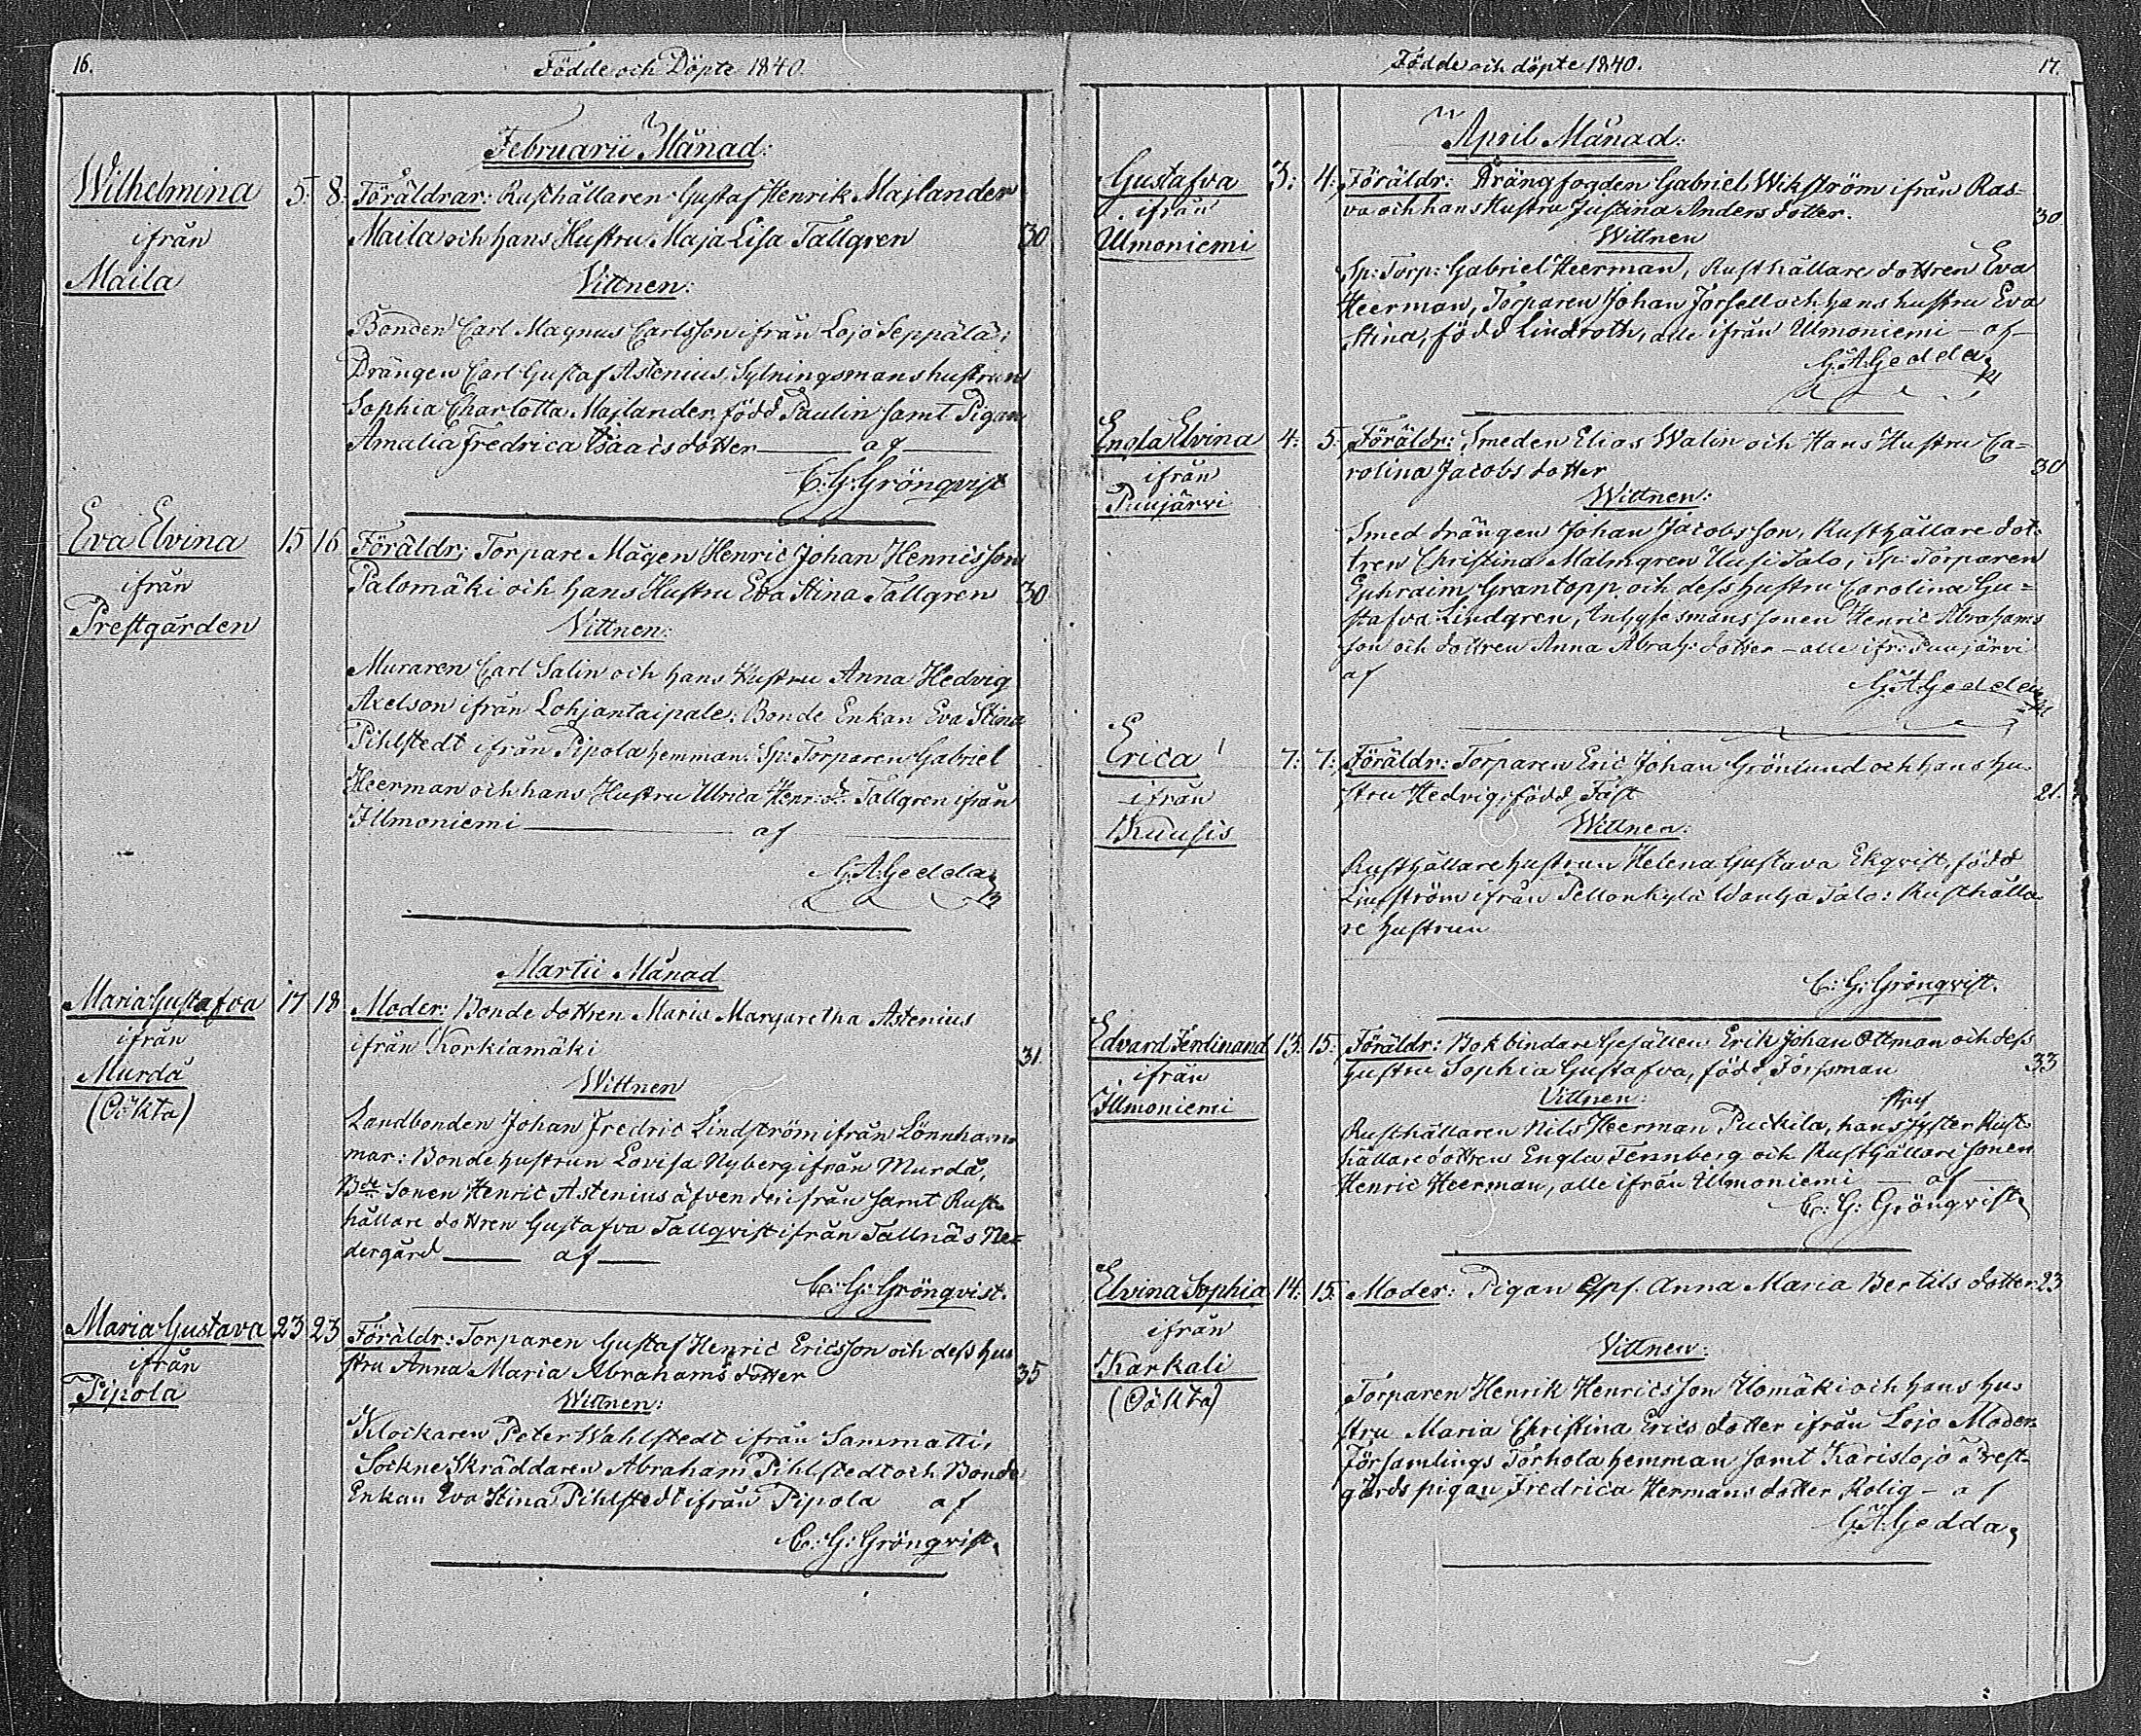 16.
Födde och Döpte 1840.
Februarii Månad:
Wilhelmina 5. 8. Föräldrar: Rusthållaren Gustaf Henrik Majlander
ifrån Maila och hans Hustru Maja Lisa Tallgren 30
Maila Vittnen:
Bonden Carl Magnus Carlsson ifrån Lojo Seppälä;
Drängen Carl Gustaf Astenius, Sylningsmanshustrun
Sophia Charlotta Majlander, född Paulin samt Pigan
Amalia Fredrica Isaacsdotter — af —
C: G: Grönqvist
Eva Elvina 15 16 Föräldr: Torpare Mågen Henric Johan Henricsson
ifrån Palomäki och hans Hustru Eva Stina Tallgren 30
Prestgården Vittnen:
Muraren Carl Salin och hans Hustru Anna Hedvig
Axelson ifrån Lohjantaipale: Bonde Enkan Eva Stina
Pihlstedt ifrån Pipola hemman: Sp: Torparen Gabriel
Heerman och hans Hustru Ulrica Henr: dr. Tallgren ifrån
Illmoniemi — af —
G. A. Gedda
Martii Månad
Maria Gustafva 17 18 Moder: Bonde dottren Maria Margaretha Astenius
ifrån ifrån Korkiamäki 31.
Murdå Wittnen
(Oäkta)
Landbonden Johan Fredric Lindström ifrån Lönnham-
mar: Bondehustrun Lovisa Nyberg ifrån Murdå,
Bde Sonen Henric Astenius äfven derifrån samt Rust-
hållare dottren Gustafva Tallqvist ifrån Tallnäs Ne-
dergård — af —
C: G: Grönqvist.
Maria Gustava 23 23 Föräldr: Torparen Gustaf Henric Ericsson och dess hu-
ifrån stru Anna Maria Abrahams dotter 35
Pipola Wittnen:
Klockaren Peter Wahlstedt ifrån Sammatti,
Sockne Skräddaren Abraham Pihlstedt och Bonde
Enkan Eva Stina Pihlstedt ifrån Pipola af
C: G: Grönqvist.
Födde och döpte 1840.
17.
April Månad:
Gustafva 3: 4: Föräldr: Drängfogden Gabriel Wikström ifrån Ras-
ifrån va och hans Hustru Justina Anders dotter. 30.
Illmoniemi Wittnen
Sp: Torp: Gabriel Heerman, Rusthållare dottren Eva
Heerman, Torparen Johan Forsell och hans hustru Eva
Stina, född Lindroth, alle ifrån Illmoniemi — af —
G. A. Gedda
Engla Elvina 4: 5. Föräldr: Smeden Elias Walin och Hans Hustru Ca-
ifrån rolina Jacobs dotter 30
Puujärvi Wittnen:
Smed drängen Johan Jacobsson, Rusthållare dot-
tren Christina Malmgren Uusi Talo, Sp: Torparen
Ephraim Grantopp och dess hustru Carolina Gu-
stafva Lindgren, Inhysesmans sonen Henric Abrahams
son och dottren Anna Abrah: dotter — alle ifr: Puujärvi
af G. A. Gedda
Erica 7: 7: Föräldr: Torparen Eric Johan Grönlund och hans hu-
ifrån stru Hedvig, född Fast 21.
Kuusis Wittnen:
Rusthållarehustrun Helena Gustava Ekqvist, född
Lindström ifrån Pellonkylä Wanha Talo: Rusthålla
re hustrun
C: G: Grönqvist.
Edvard Ferdinand 13. 15. Föräldr: Bokbindare Gesällen Erik Johan Ottman och dess
ifrån hustru Sophia Gustafva, född Forssman 33
Illmoniemi Vittnen:
Rusthållaren Nils Heerman Puckila, hans Syster Rust-
hållaredottren Engla Tennberg och Rusthållare sonen
Henric Heerman, alle ifrån Illmoniemi — af —
C: G: Grönqvist
Elvina Sophia 14: 15. Moder: Pigan Anna Maria Bertils dotter 23
ifrån Vittnen:
Karkali
(Oäkta)
Torparen Henrik Henricsson Ulomäki och hans hu-
stru Maria Christina Erics dotter ifrån Lojo Moder
Församlings Torhola hemman samt Karislojo Prest-
gårds pigan Fredrica Hermans dotter Rolig — af
G. A. Gedda